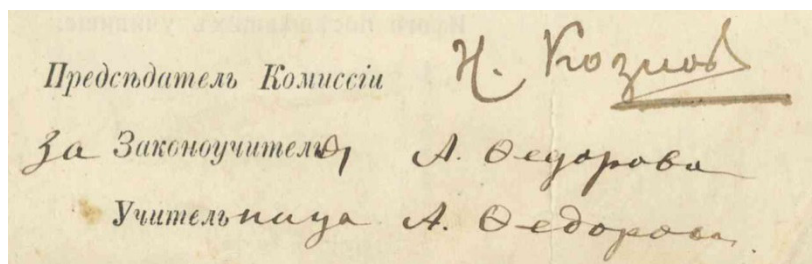 Предсѣдатель Комиссіи Н. Козлов
за Законоучителя, А. Ѳедорова
Учительница А. Ѳедорова.